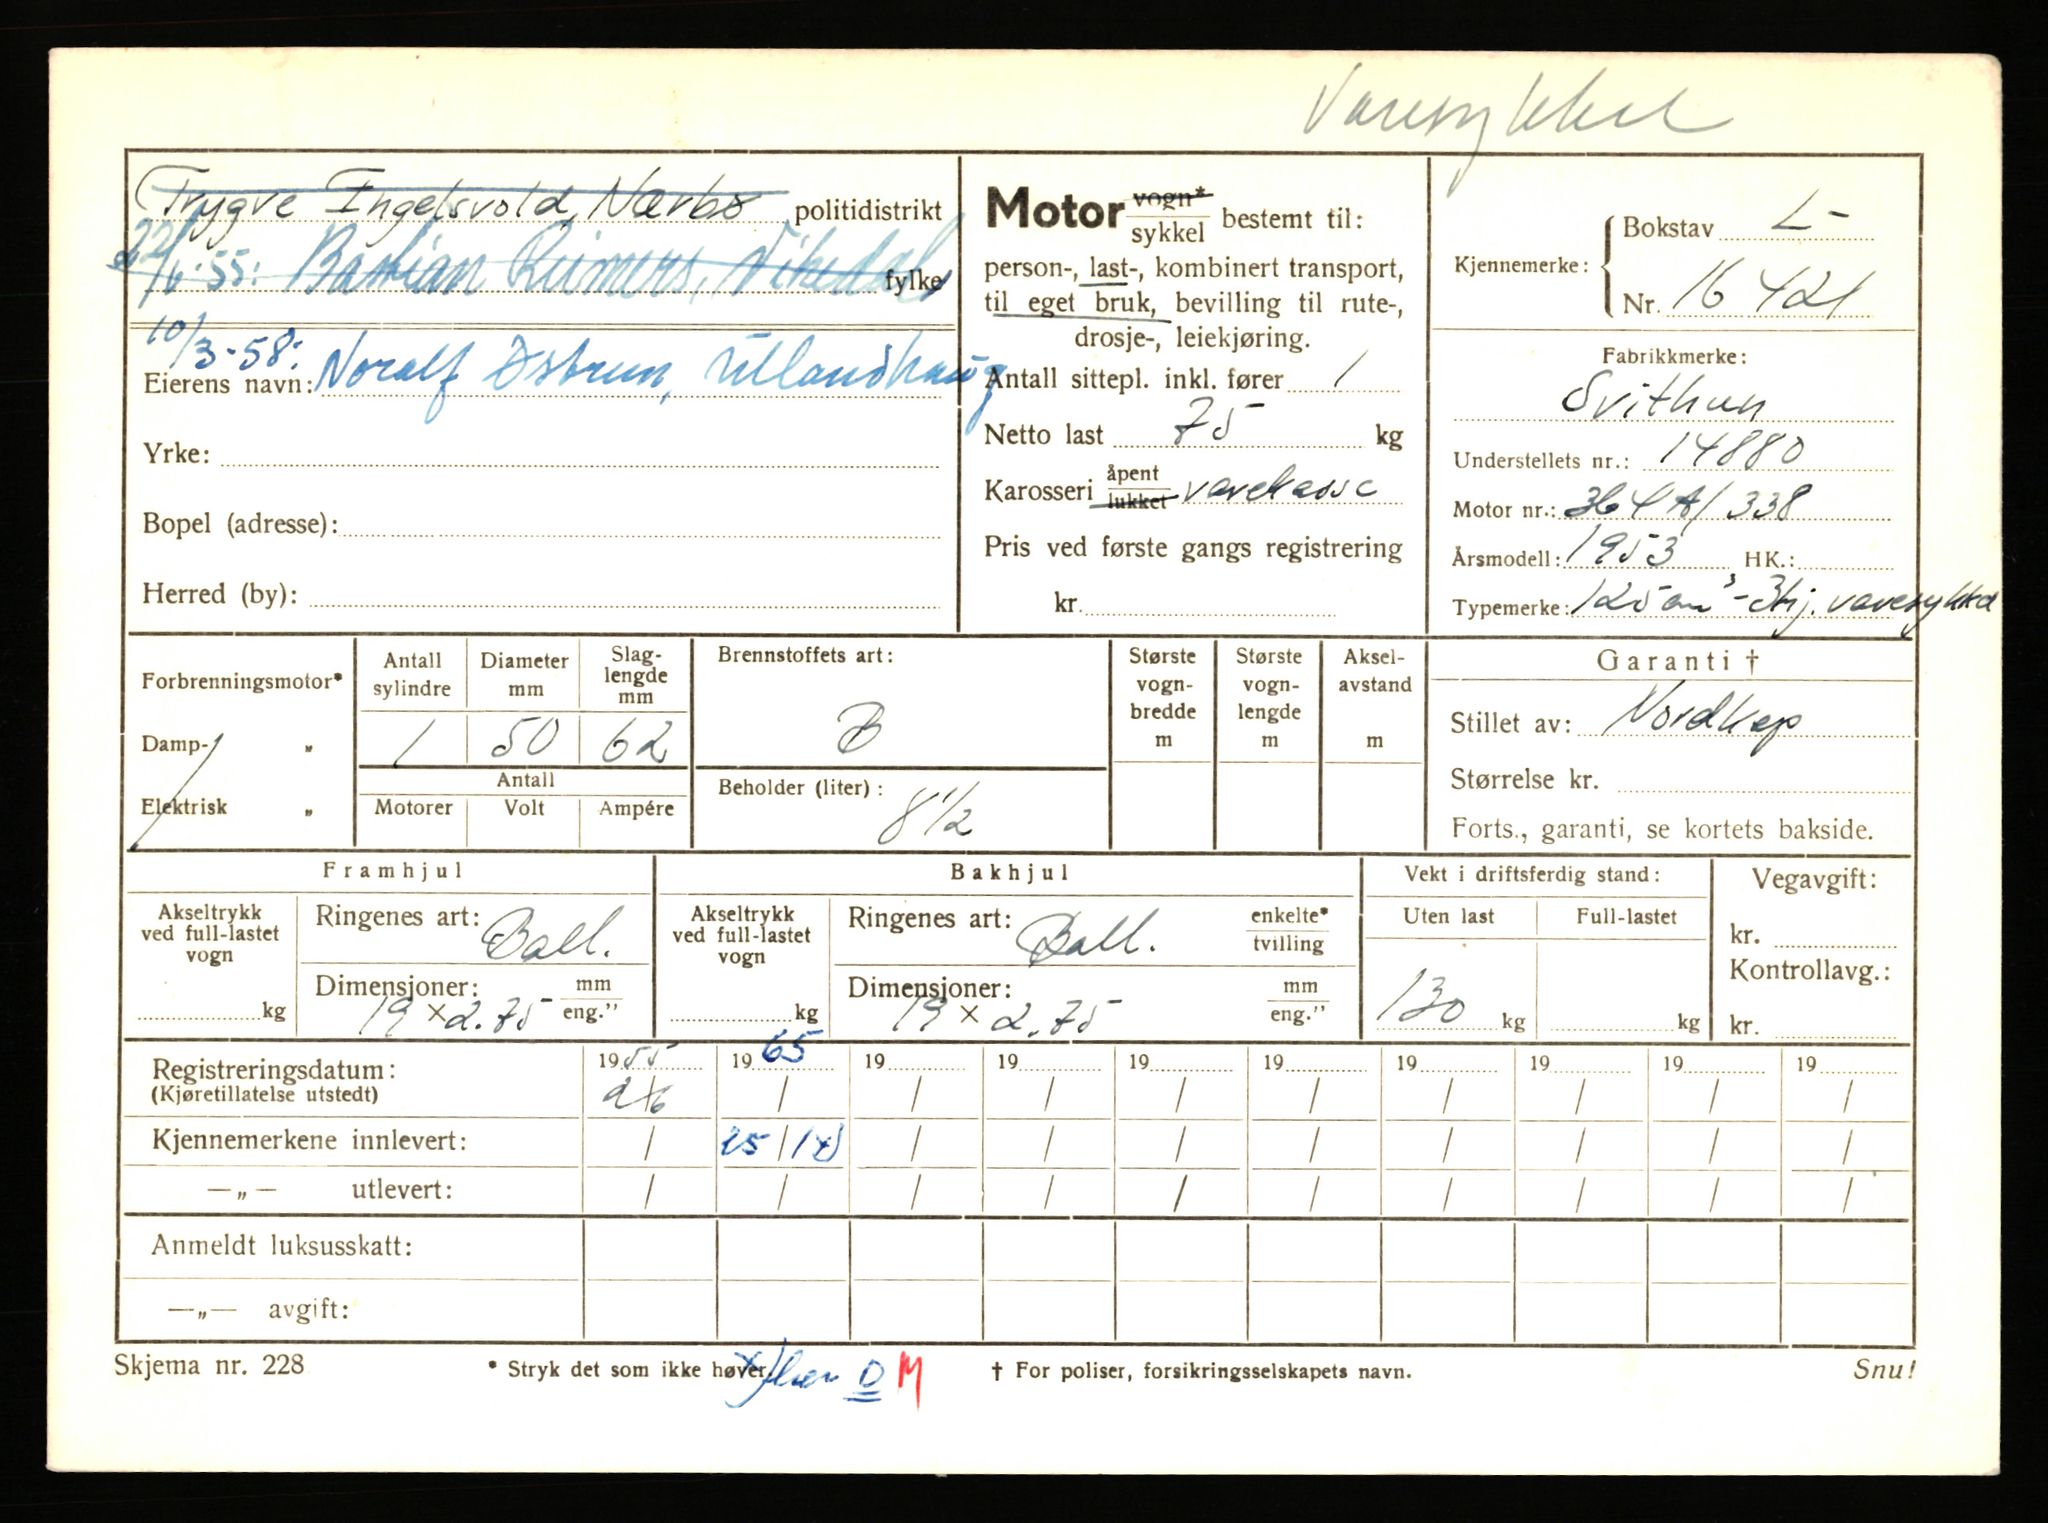 Varesykkel
Trygve Ingelsvold, Nærbø politidistrikt
22/6-55: Bastian Reimers, Vikedal fylke
10/3-58:
Eierens navn: Noralf Østrem, Ullandhaug
Yrke:
Bopel (adresse):
Herred (by):
Motor vogn* sykkel bestemt til:
person-, last-, kombinert transport,
til eget bruk, bevilling til rute-,
drosje-, leiekjøring.
Antall sittepl. inkl. fører 1
Netto last 75 kg
Karosseri åpent lukket varekasse
Pris ved første gangs registrering
kr.
Kjennemerke: Bokstav L-
Nr. 16421
Fabrikkmerke:
Svithun
Understellets nr.: 14880
Motor nr.: 364A/338
Årsmodell: 1953 HK.:
Typemerke: 125 cm³-3hj. varesykkel
Forbrenningsmotor*
Damp- „
Elektrisk „
Antall sylindre
Diameter mm
Slag-lengde mm
1 50 62
Antall
Motorer Volt Ampére
Brennstoffets art:
B
Beholder (liter):
8 1/2
Største vogn-bredde m
Største vogn-lengde m
Aksel-avstand m
Garanti †
Stillet av: Nordkap
Størrelse kr.
Forts., garanti, se kortets bakside.
Framhjul
Akseltrykk ved full-lastet vogn
kg
Ringenes art: Ball.
Dimensjoner: mm eng."
19 x 2.75
Bakhjul
Akseltrykk ved full-lastet vogn
kg
Ringenes art: Ball. enkelte* tvilling
Dimensjoner: mm eng."
19 x 2.75
Vekt i driftsferdig stand:
Uten last Full-lastet
130 kg kg
Vegavgift:
kr.
Kontrollavg.:
kr.
Registreringsdatum: 1955 1965 19 19 19 19 19 19 19 19
(Kjøretillatelse utstedt) 2/6 / / / / / / / / /
Kjennemerkene innlevert: / 25/1 x) / / / / / / / /
—„— utlevert: / / / / / / / / / /
Anmeldt luksusskatt:
—„— avgift:
Skjema nr. 228
* Stryk det som ikke høver.
x) D M
† For poliser, forsikringsselskapets navn.
Snu!